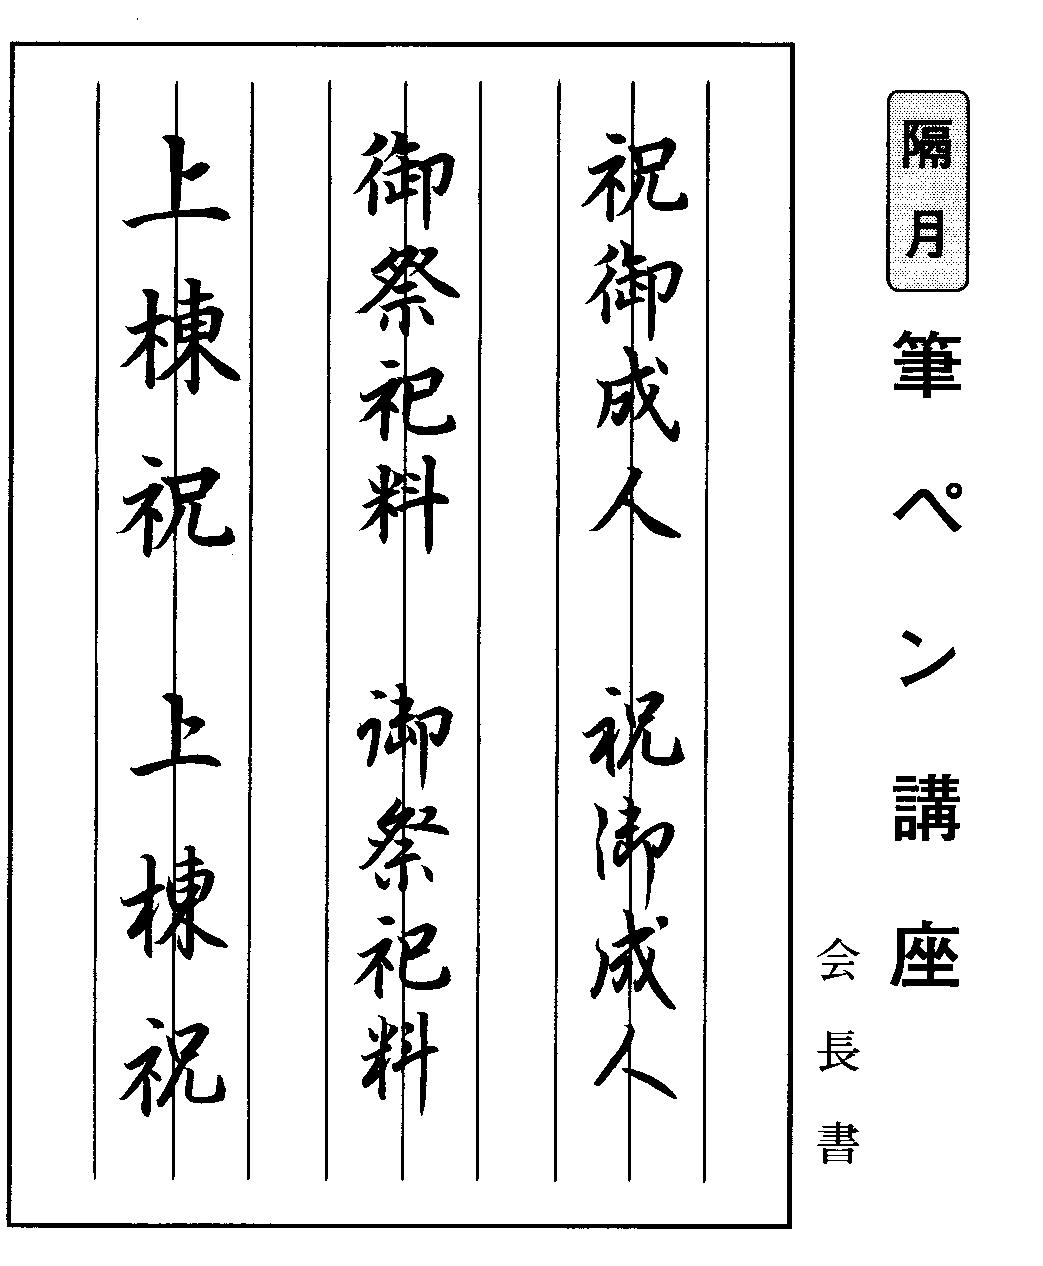 隔月 筆ペン講座
会長書
祝御成人 祝御成人
御祭祀料 御祭祀料
上棟祝 上棟祝